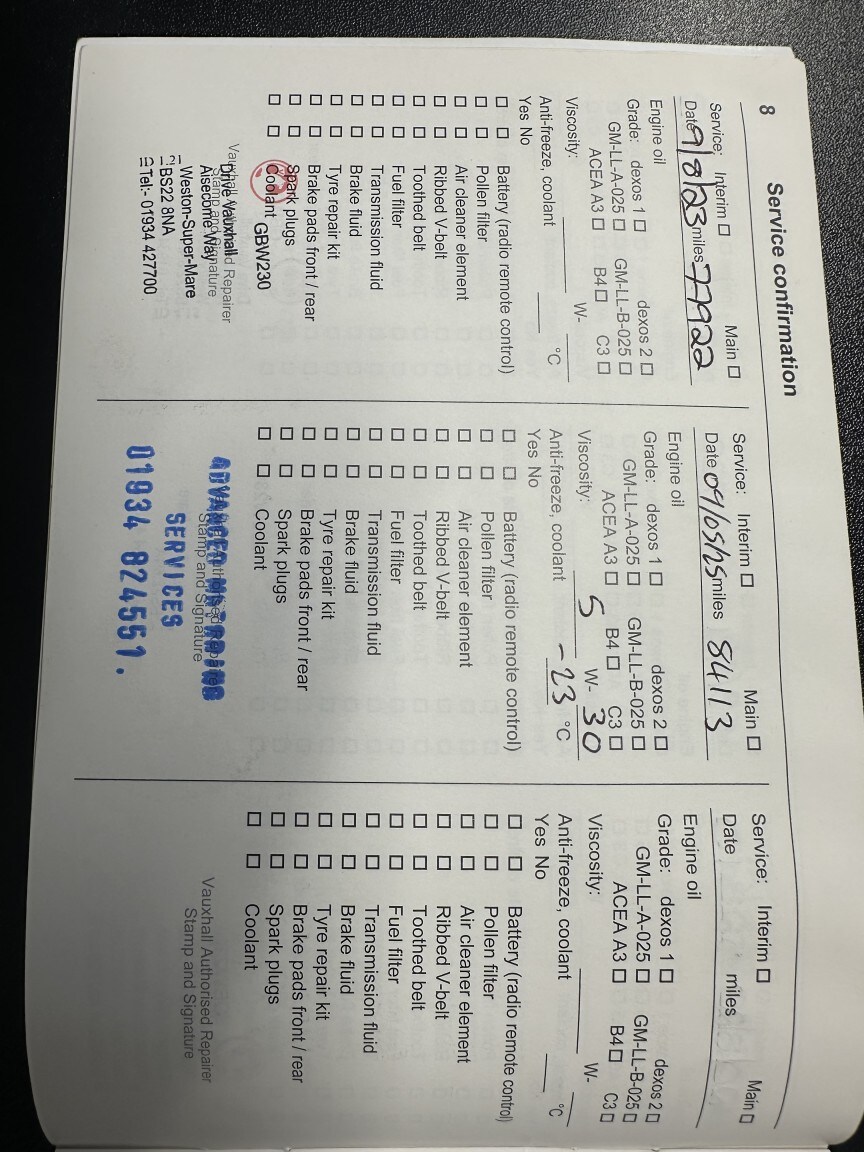 8
Service confirmation
Service: Interim □ Main □
Date 9/8/23 miles 77922
Engine oil
Grade: dexos 1 □ dexos 2 □
GM-LL-A-025 □ GM-LL-B-025 □
ACEA A3 □ B4 □ C3 □
Viscosity: W-
Anti-freeze, coolant °C
Yes No
□ □ Battery (radio remote control)
□ □ Pollen filter
□ □ Air cleaner element
□ □ Ribbed V-belt
□ □ Toothed belt
□ □ Fuel filter
□ □ Transmission fluid
□ □ Brake fluid
□ □ Tyre repair kit
□ □ Brake pads front / rear
□ □ Spark plugs
□ □ Coolant GBW230
Drive Vauxhall
Aisecome Way
Weston-Super-Mare
BS22 8NA
Tel:- 01934 427700
Service: Interim □ Main □
Date 09/05/25 miles 84113
Engine oil
Grade: dexos 1 □ dexos 2 □
GM-LL-A-025 □ GM-LL-B-025 □
ACEA A3 □ B4 □ C3 □
Viscosity: 5 W- 30
Anti-freeze, coolant -23 °C
Yes No
□ □ Battery (radio remote control)
□ □ Pollen filter
□ □ Air cleaner element
□ □ Ribbed V-belt
□ □ Toothed belt
□ □ Fuel filter
□ □ Transmission fluid
□ □ Brake fluid
□ □ Tyre repair kit
□ □ Brake pads front / rear
□ □ Spark plugs
□ □ Coolant
Stamp and Signature
SERVICES
01934 824561.
Service: Interim □ Main □
Date miles
Engine oil
Grade: dexos 1 □ dexos 2 □
GM-LL-A-025 □ GM-LL-B-025 □
ACEA A3 □ B4 □ C3 □
Viscosity: W-
Anti-freeze, coolant °C
Yes No
□ □ Battery (radio remote control)
□ □ Pollen filter
□ □ Air cleaner element
□ □ Ribbed V-belt
□ □ Toothed belt
□ □ Fuel filter
□ □ Transmission fluid
□ □ Brake fluid
□ □ Tyre repair kit
□ □ Brake pads front / rear
□ □ Spark plugs
□ □ Coolant
Vauxhall Authorised Repairer
Stamp and Signature